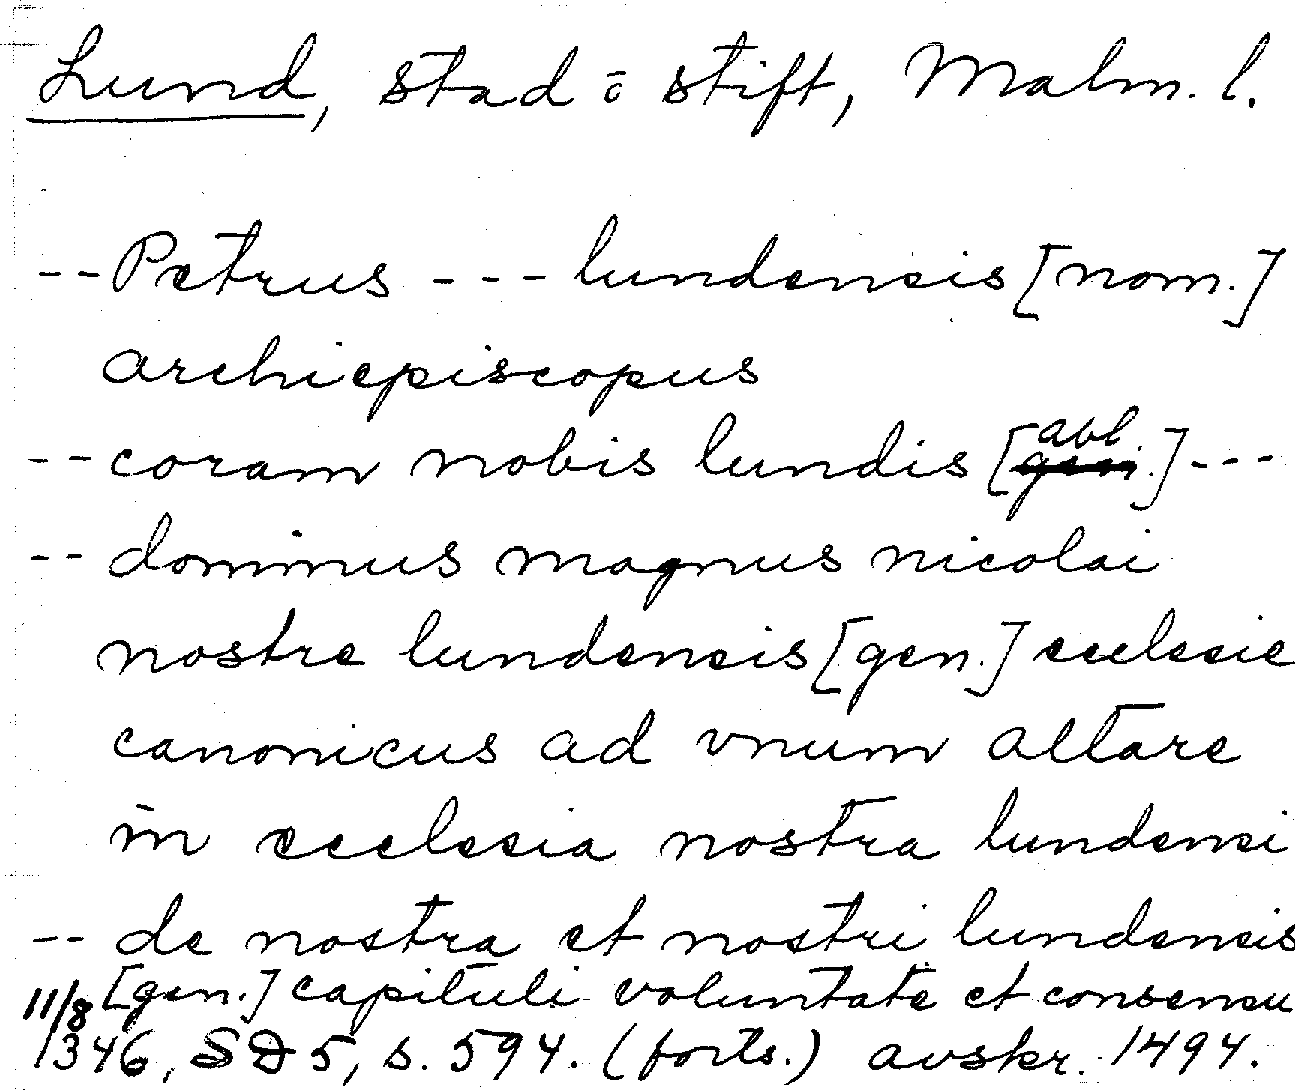 Lund, stad o stift, Malm. l.
-- Petrus --- lundensis [nom.]
archiepiscopus
-- coram nobis lundis [abl.] ---
-- dominus magnus nicolai
nostre lundensis [gen.] ecclesie
canonicus ad vnum altare
in ecclesia nostra lundensi
-- de nostra et nostri lundensis
[gen.] capituli voluntate et consensu
11/8 1346, SD 5, s. 594. (forts.) avskr. 1494.